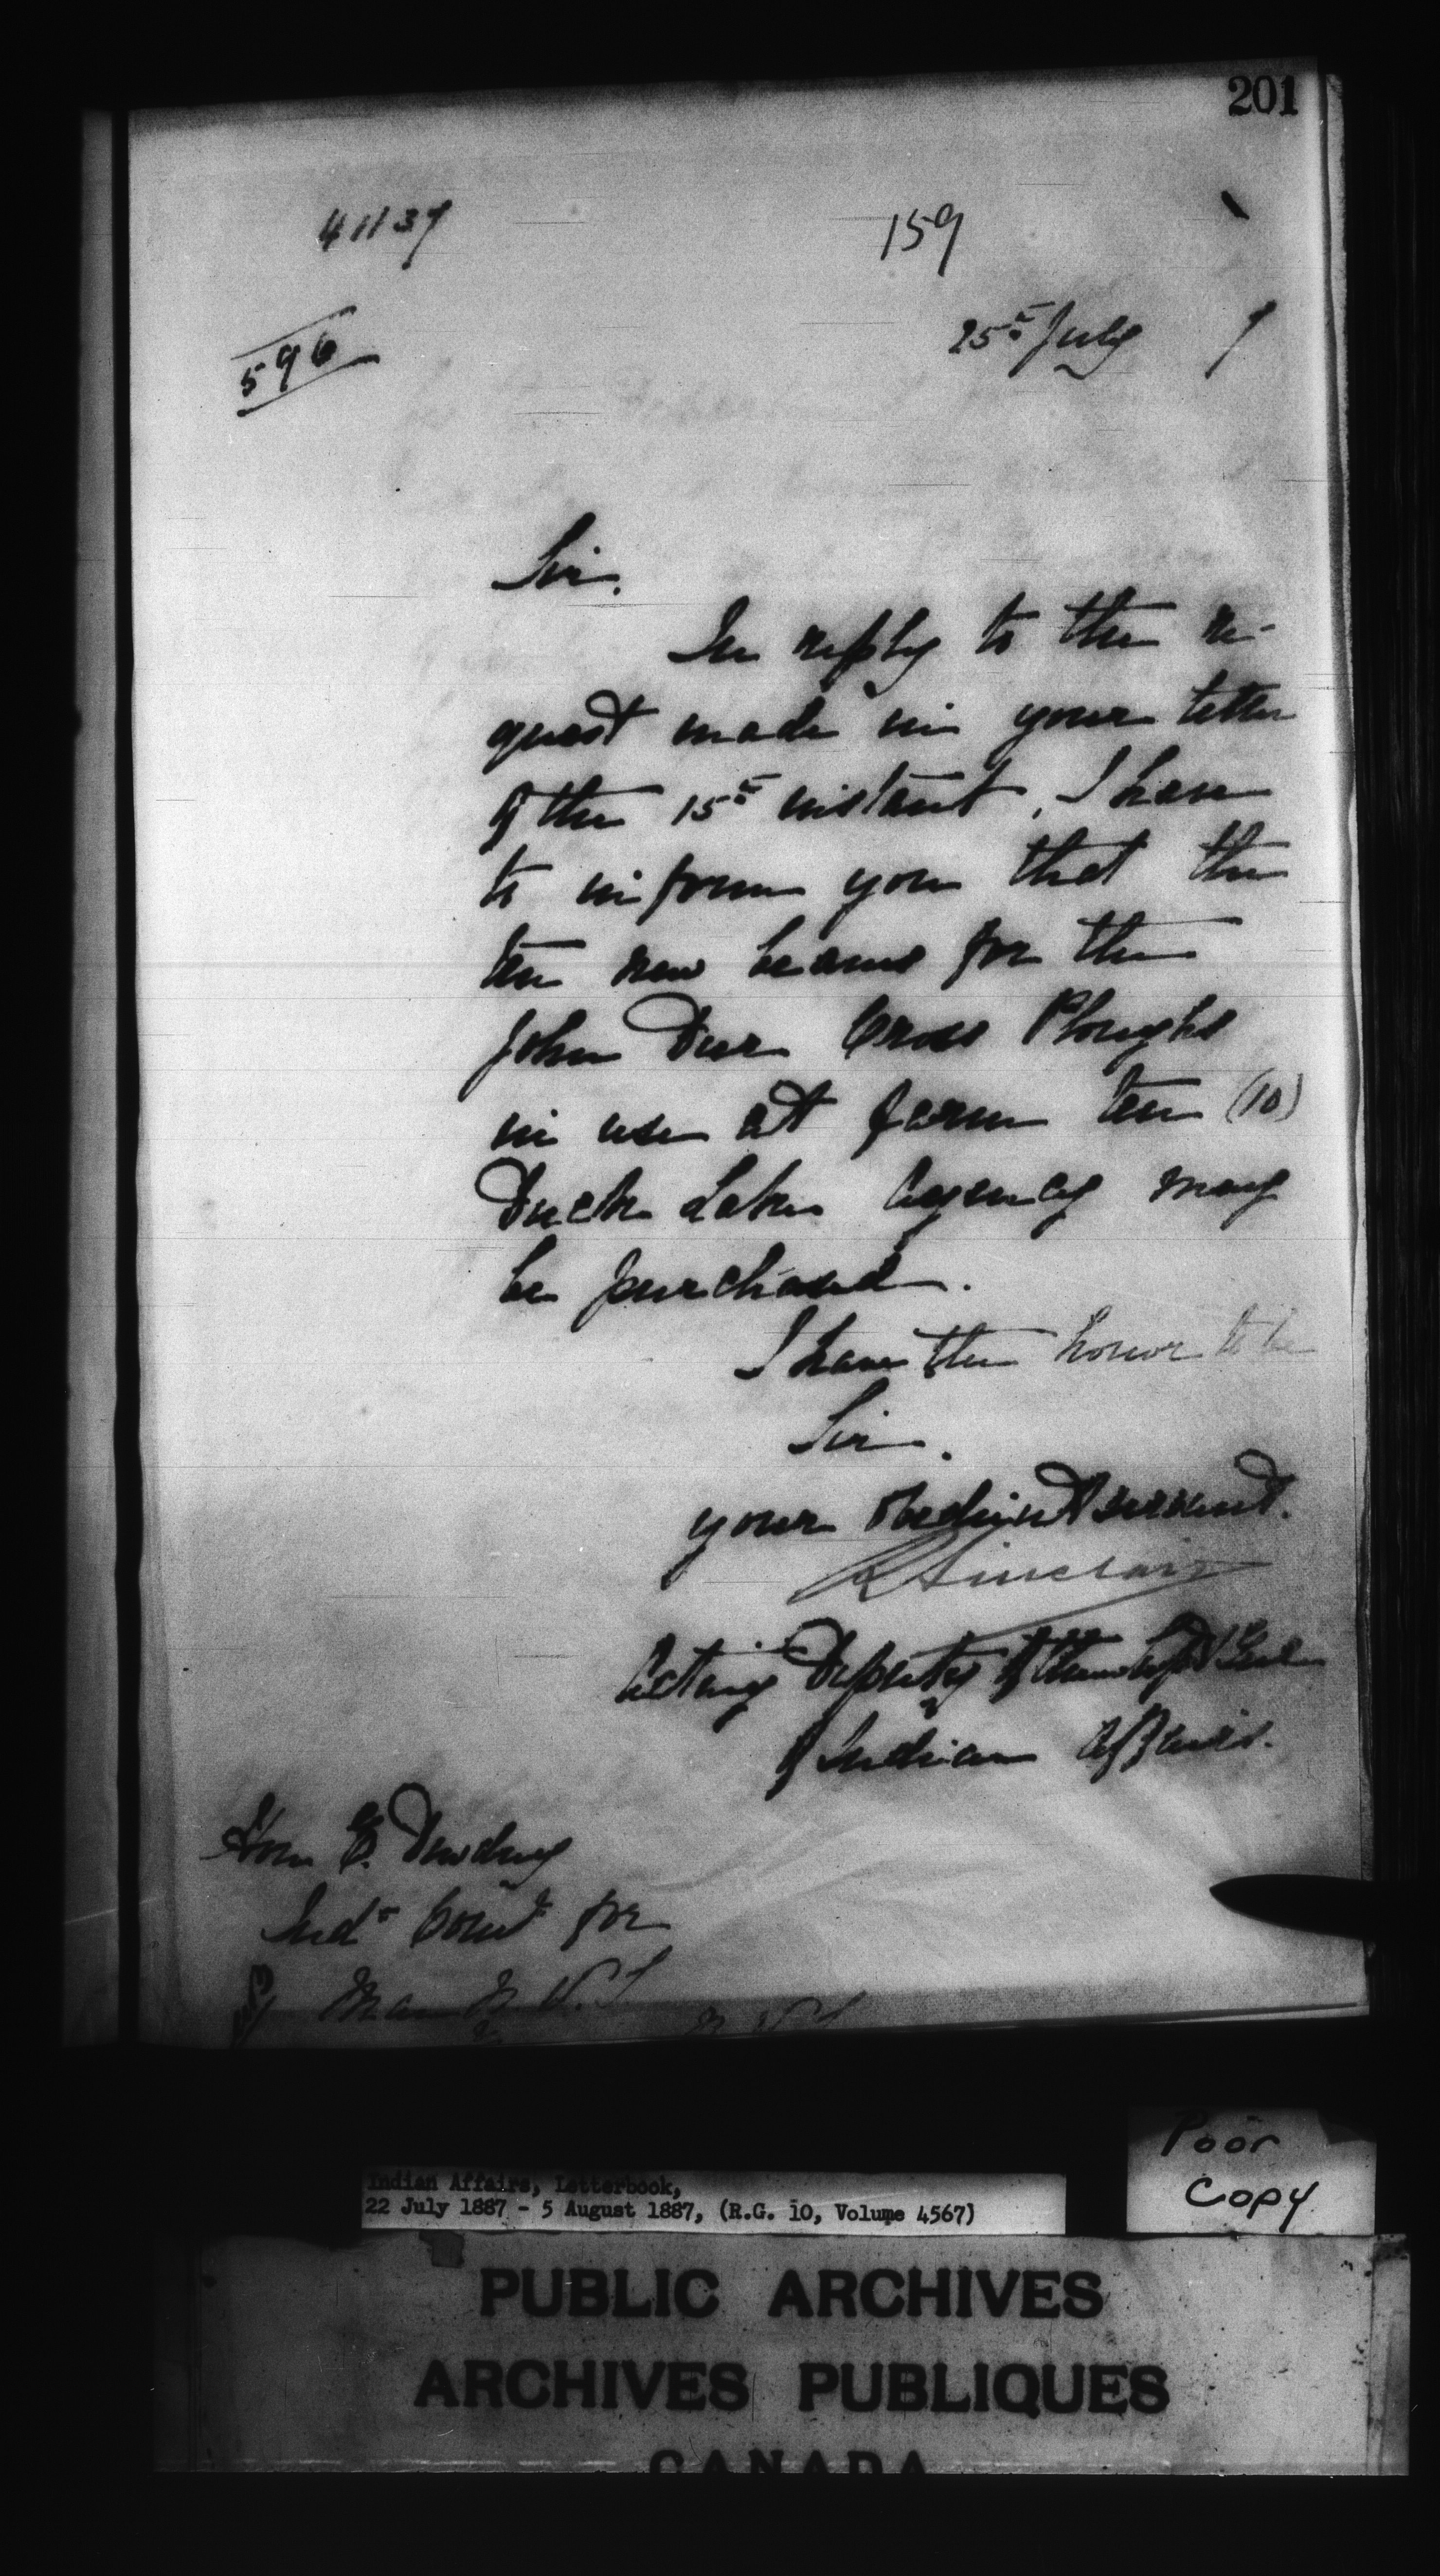 201
41137
159
596
25th July 7
Sir.
In reply to the re-
quest made in your letter
of the 15th instant, I have
to inform you that the
ten new beams for the
John Deer Cross Ploughs
in use at farm ten (10)
Duck Lake Agency may
be purchased.
I have the honor to be
Sir.
your obedient servant.
R Sinclair
Acting Deputy of the Supt Genl
of Indian Affairs.
Hon E. Dewdney
Indn Comr for
Man N.W.T.
N W T
Poor
Copy
Indian Affairs, Letterbook,
22 July 1887 - 5 August 1887, (R.G. 10, Volume 4567)
PUBLIC ARCHIVES
ARCHIVES PUBLIQUES
CANADA